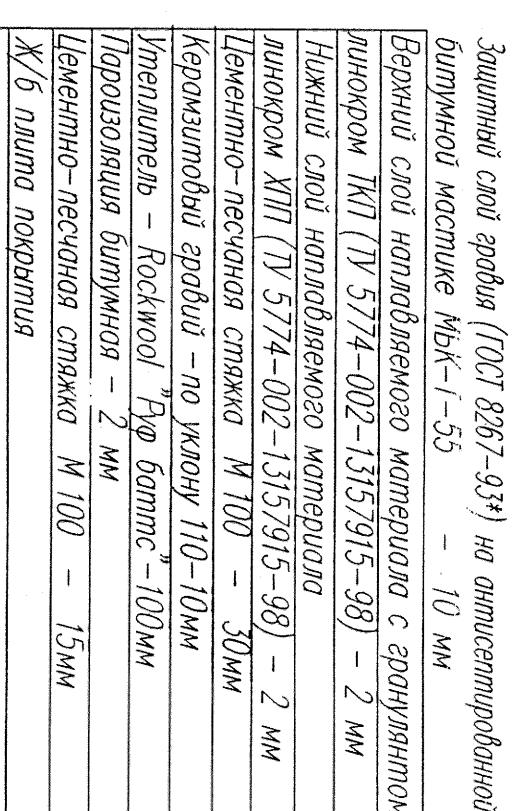 Защитный слой гравия (ГОСТ 8267-93*) на антисептированной
битумной мастике МБК-Г-55 - 10 мм
Верхний слой наплавляемого материала с гранулянтом
линокром ТКП (ТУ 5774-002-13157915-98) - 2 мм
Нижний слой наплавляемого материала
линокром ХПП (ТУ 5774-002-13157915-98) - 2 мм
Цементно-песчаная стяжка М 100 - 30мм
Керамзитовый гравий -по уклону 110-10мм
Утеплитель - Rockwool "Руф баттс"-100мм
Пароизоляция битумная - 2 мм
Цементно-песчаная стяжка М 100 - 15мм
Ж/б плита покрытия